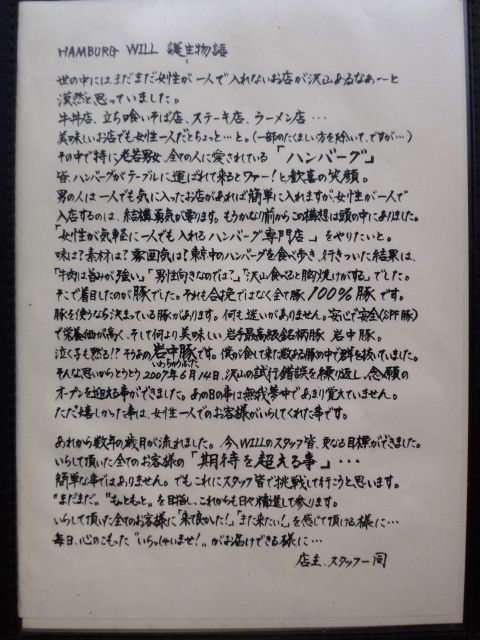 HAMBURG WILL 誕生物語
世の中にはまだまだ女性が一人で入れないお店が沢山あるなぁ〜と
漠然と思っていました。
牛丼店、立ち喰いそば店、ステーキ店、ラーメン店・・・
美味しいお店でも女性一人だとちょっと…と。(一部のたくましい方を除いて、ですが…)
その中で特に老若男女、全ての人に愛されている「ハンバーグ」
皆、ハンバーグがテーブルに運ばれて来るとワァー!と歓喜の笑顔。
男の人は一人でも気に入ったお店があれば簡単に入れますが、女性が一人で
入店するのは、結構勇気が要ります。もうかなり前からこの構想は頭の中にありました。
「女性が気軽に一人でも入れるハンバーグ専門店」をやりたいと。
味は?素材は?雰囲気は?東京中のハンバーグを食べ歩き、行きついた結果は、
「牛肉は旨みが強い」「男性向きなのでは?」「沢山食べると胸焼けがする」でした。
そこで着目したのが豚でした。それも合挽ではなく全て豚、100%豚です。
豚を使うなら決まっている豚があります。何も迷いがありません。安心で安全(SPF豚)
で栄養価が高く、そして何より美味しい、岩手最高級銘柄豚 岩中豚。
泣く子も黙る!?そうあの岩中豚です。僕が食して来た数ある豚の中で群を抜いていました。
いわちゅうぶた
そんな思いからとうとう2007年6月14日、沢山の試行錯誤を繰り返し、念願の
オープンを迎える事ができました。あの日の事は無我夢中であまり覚えていません。
ただ嬉しかった事は、女性一人でのお客様がいらしてくれた事です。
あれから数年の歳月が流れました。今、WILLのスタッフ皆、更なる目標ができました。
いらして頂いた全てのお客様の「期待を超える事」・・・
簡単な事ではありません。でもこれにスタッフ皆で挑戦して行こうと思います。
"まだまだ"、"もっともっと"を目指し、これからも日々精進して参ります。
いらして頂いた全てのお客様に「来て良かった!」「また来たい!」を感じて頂ける様に…
毎日、心のこもった"いらっしゃいませ!"がお届けできる様に…
店主、スタッフ一同